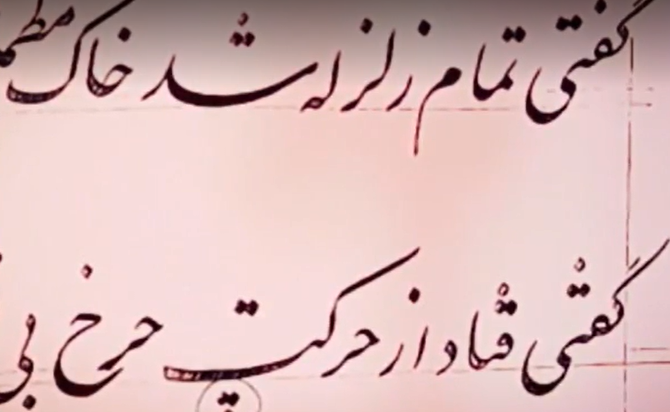 گفتی تمام زلزله شد خاک مطمئن
گفتی فتاد از حرکت چرخ بی